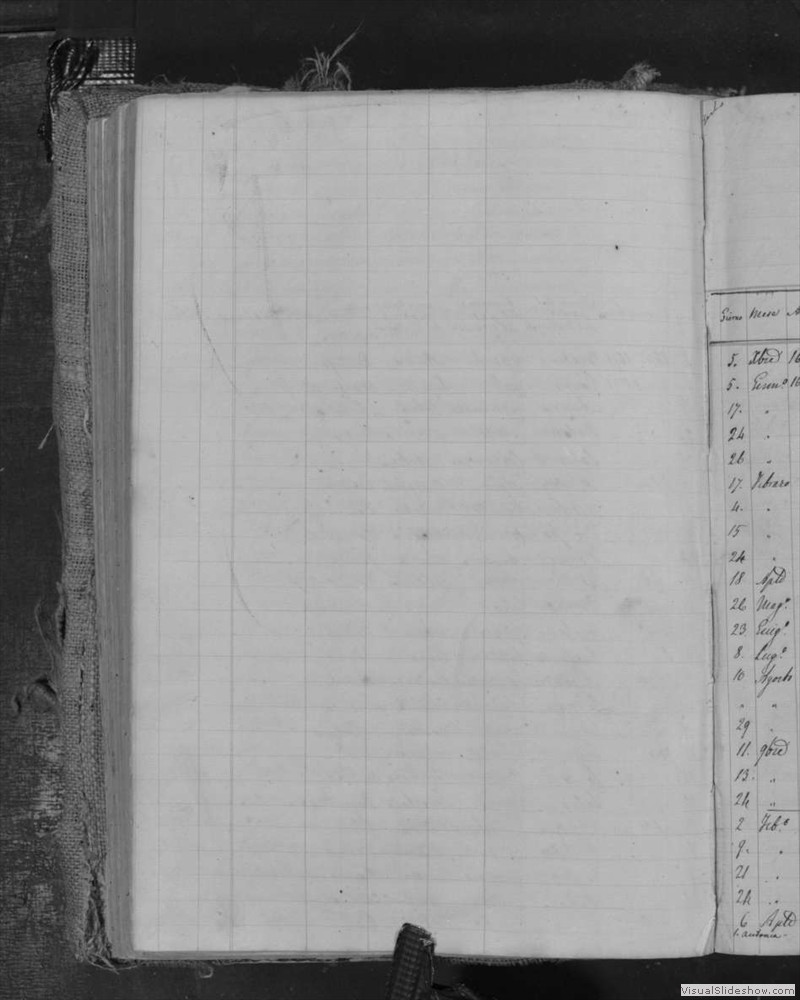 Giorno Mese
5. Xbre 16
5. Genn.o 16
17. "
24 "
26 "
17. Febraro
4. "
15 "
24 "
18 Aple
26 Mag.o
23 Giug.o
8. Lug.o
10 Agosto
" "
29 "
11. 9bre
13. "
24 "
2 Feb.o
9. "
21 "
24 "
6 Aple
VisualSlideshow.com